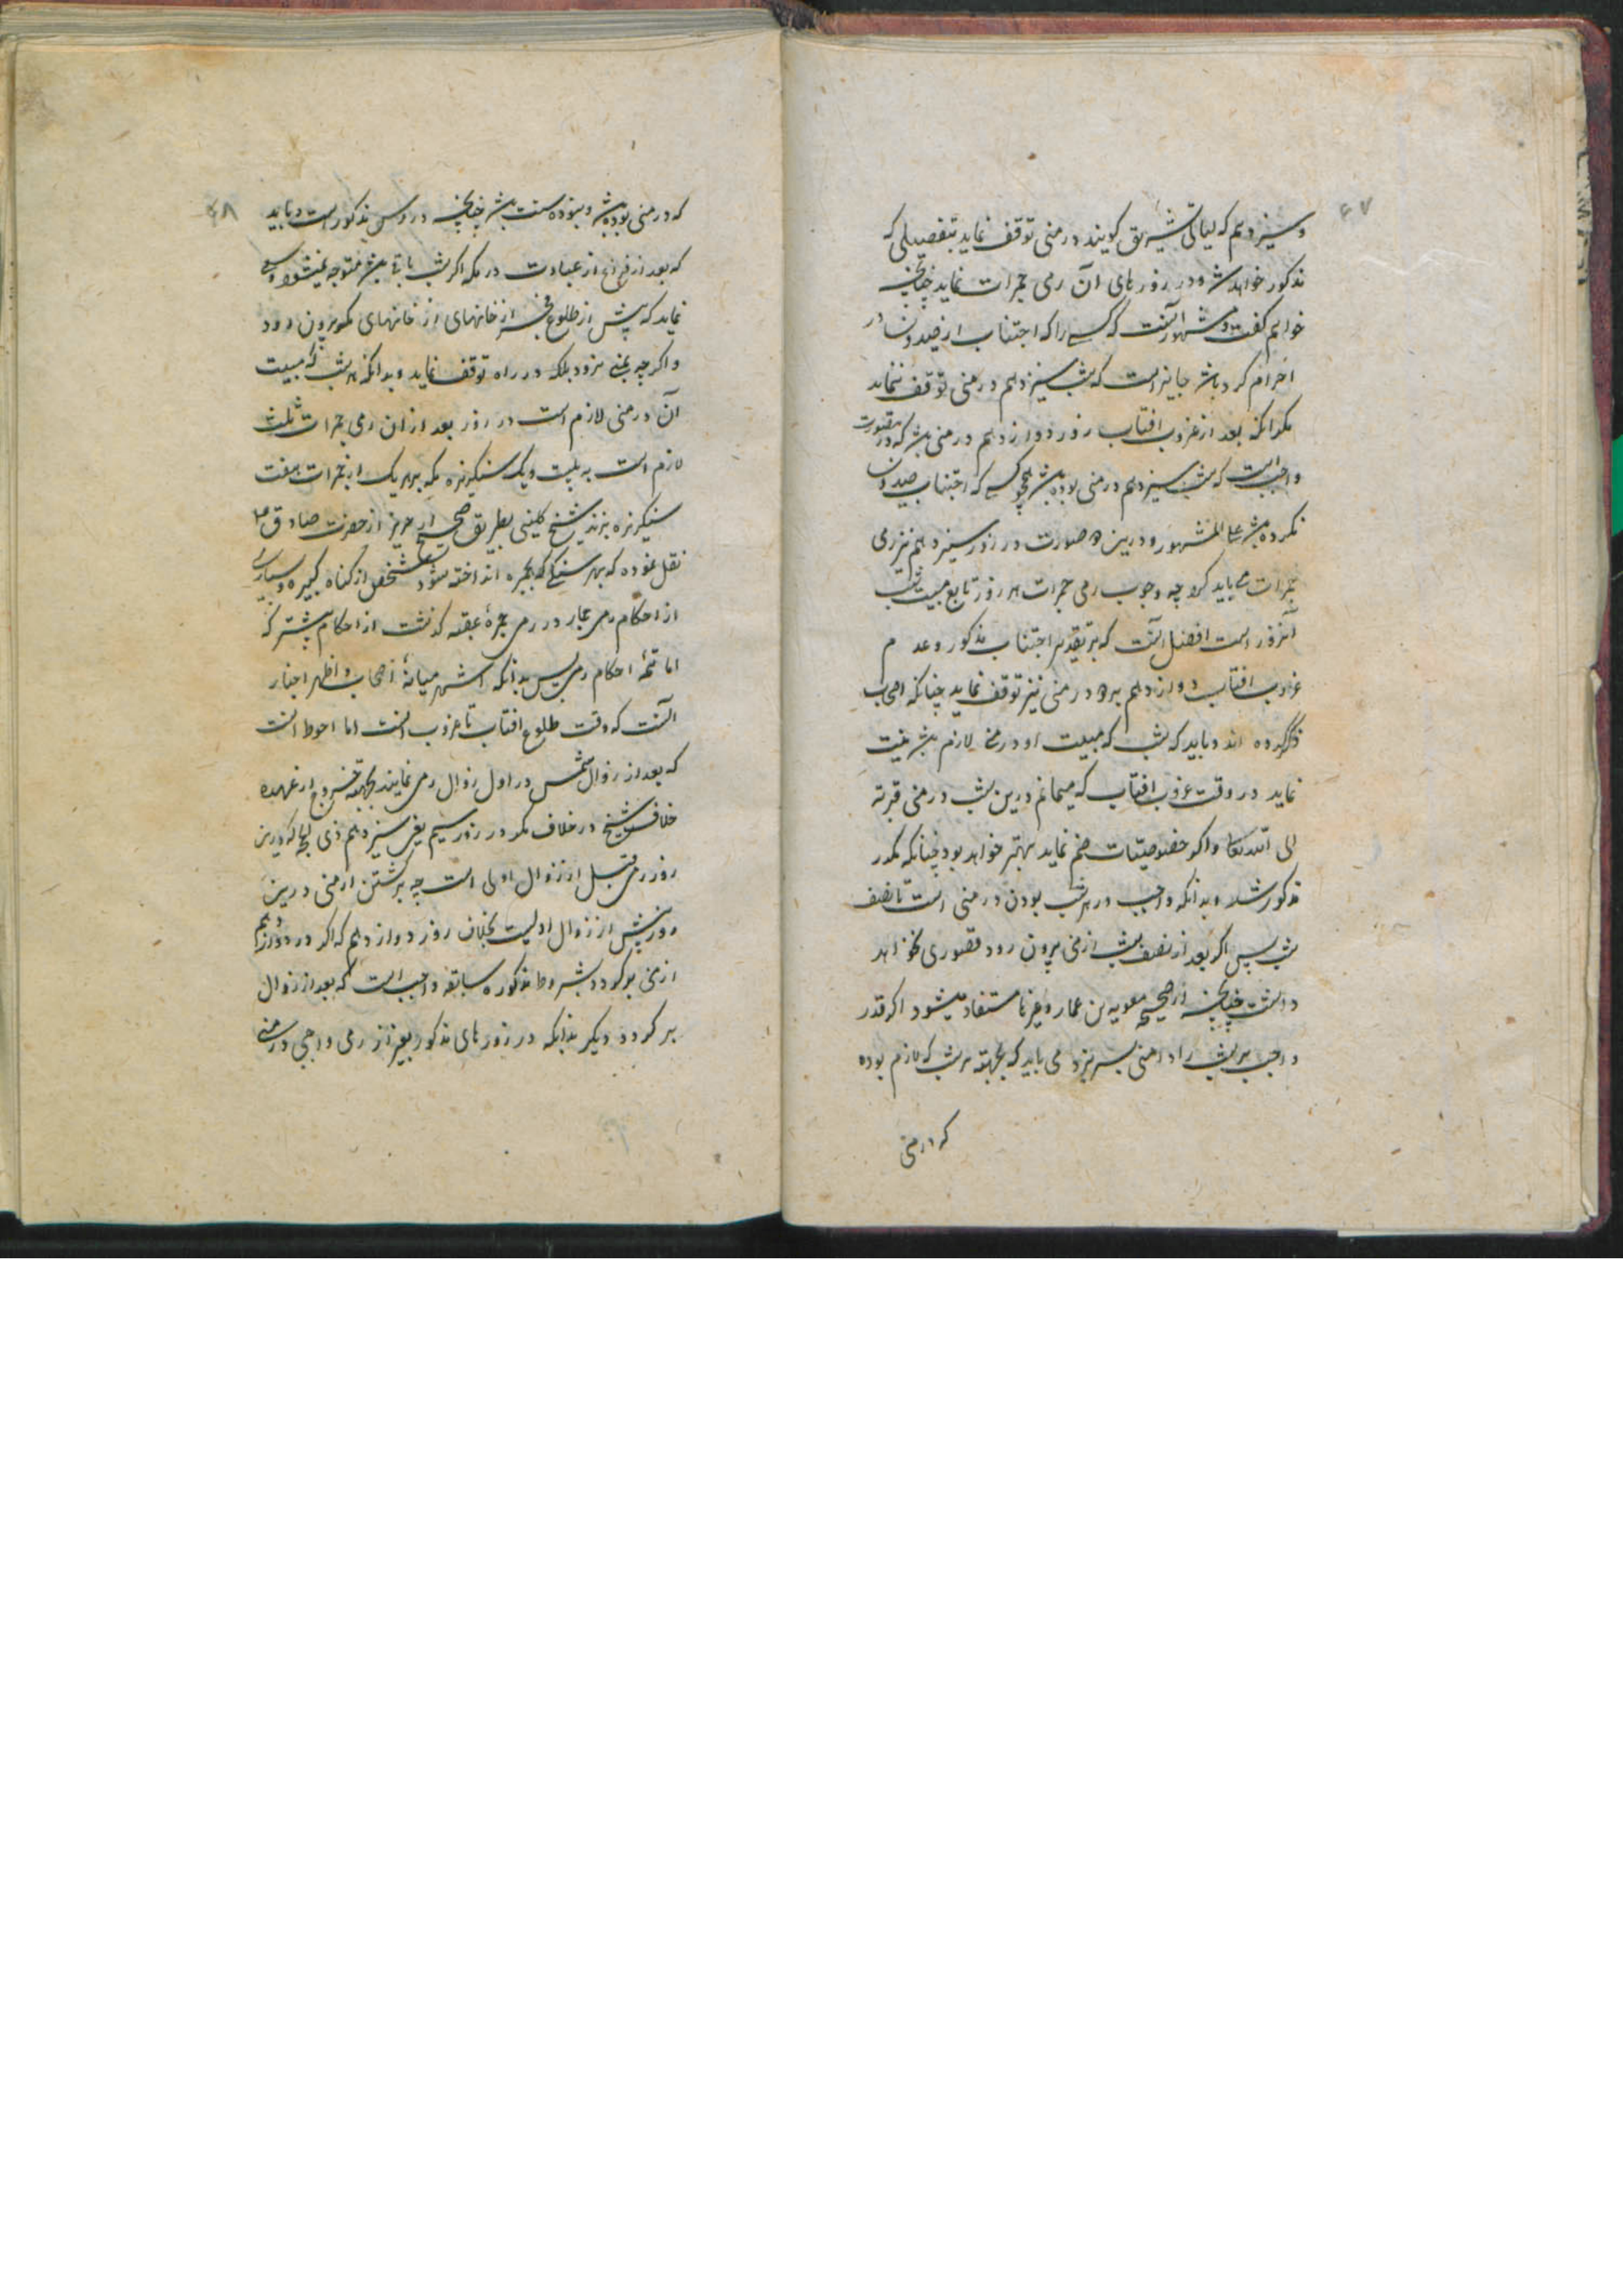 ۶۷
و سیزدهم که لیالی تشریق گویند در منی توقف نماید بتفصیلی که
مذکور خواهد شد و در روزهای آن رمی جمرات نماید چنانچه
خواهم گفت و مشهور آنست که کسی را که اجتناب از صید و نسا در
احرام کرده باشد جایز است که شب سیزدهم در منی توقف ننماید
مگر آنکه بعد از غروب افتاب روز دوازدهم در منی باشد که درینصورت
واجبست که شب سیزدهم در منی بوده باشد همچو کسی که اجتناب صید و نسا
نکرده باشد علی المشهور و درین دو صورت در روز سیزدهم نیز رمی
جمرات می باید کرد چه وجوب رمی جمرات هر روز تابع مبیت شب
آنروز است افضل آنست که بر تقدیر اجتناب مذکور و عدم
غروب افتاب دوازدهم برو در منی نیز توقف نماید چنانکه اصحاب
ذکر کرده اند و باید که شب که مبیت او در منی لازم باشد نیت
نماید در وقت غروب افتاب که میمانم درین شب در منی قربة
الی الله تعالی و اگر خصوصیتات ضم نماید بهتر خواهد بود چنانکه مکرر
مذکور شد و بدانکه واجب در هر شب بودن در منی است تا نصف
شب پس اگر بعد از نصف شب از منی بیرون رود قصوری نخواهد
داشت چنانچه از صحیحه معویه بن عمار و غیرها مستفاد میشود اگر قدر
واجب هر شب را در منی بسر نبرد می باید که بجهته هر شب که لازم بوده
که در منی
۶۸
که در منی بوده باشد و نبوده ست باشد چنانچه در دروس مذکور است و باید
که بعد از فراغ از عبادت در مکه اگر شب باقی باشد متوجه منی شود و سعی
نماید که پیش از طلوع فجر از خانهای از خانهای مکه بیرون رود
و اگر چه بمنی نرود بلکه در راه توقف نماید و بدانکه هر شب که مبیت
آن در منی لازم است در روز بعد از ان رمی جمرات ثلث
لازم است به بیست و یک سنگریزه که بهر یک از جمرات هفت
سنگریزه بزند شیخ کلینی بطریق صحیح از حریز از حضرت صادق ع
نقل نموده که بهر سنگی که بجمره انداخته شود شخص از گناه کبیره و بسیاری
از احکام رمی جمار در رمی جمرهٔ عقبه گذشت از احکام مشترکه
اما تتمهٔ احکام رمی پس بدانکه اشهر میانهٔ اصحاب و اظهر اخبار
آنست که وقت طلوع افتاب تا غروب است اما احوط انست
که بعد از زوال شمس در اول زوال رمی نمایند بجهته خروج از عهده
خلاف شیخ در خلاف مگر در روز سیم یعنی سیزدهم ذی الحجه که درین
روز رمی قبل از زوال اولی است چه برگشتن از منی درین
روز پیش از زوال اولیست بخلاف روز دوازدهم که اگر در دوازدهم
از منی برگردد بشروط مذکوره سابقه واجب است که بعد از زوال
برگردد دیگر بدانکه در روزهای مذکور بغیر از رمی واجبی در منی